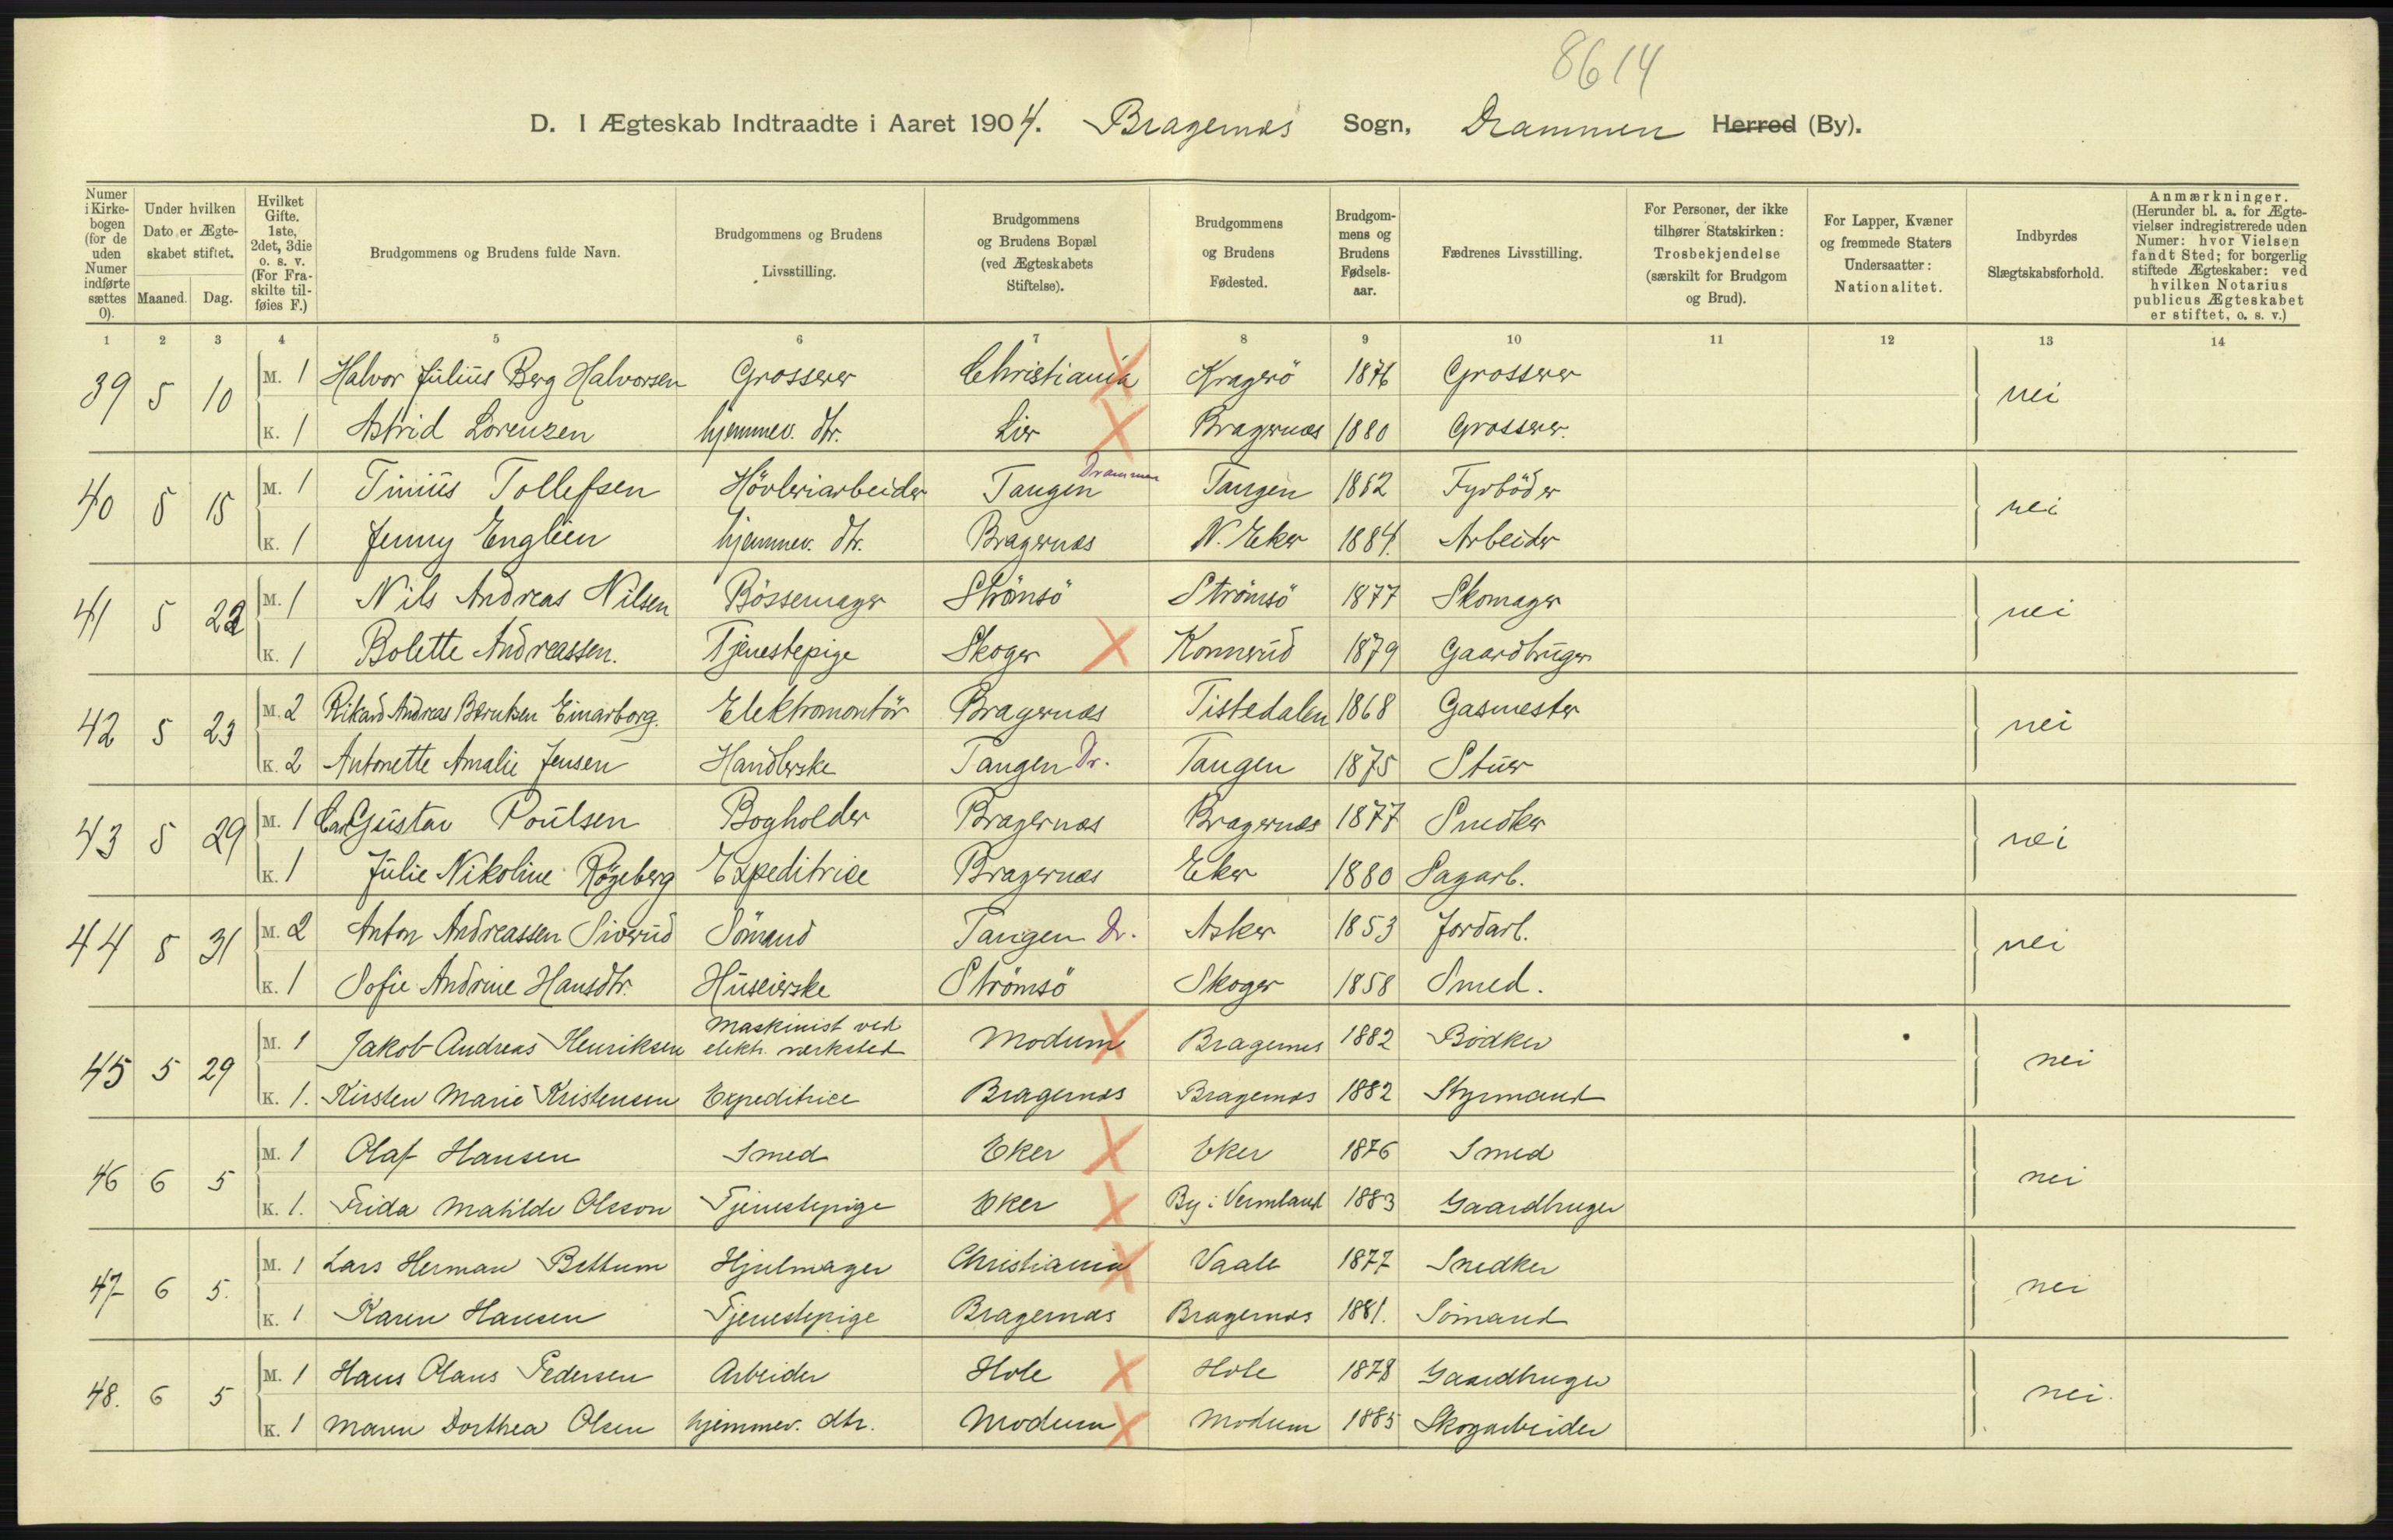 8614
D. I Ægteskab Indtraadte i Aaret 1904. Bragernæs Sogn, Drammen Herred (By).
Numer i Kirkebogen (for de uden Numer indførte sættes 0).
Under hvilken Dato er Ægteskabet stiftet. Maaned. Dag.
Hvilket Gifte. 1ste, 2det, 3die o. s. v. (For Fraskilte tilføies F.)
Brudgommens og Brudens fulde Navn.
Brudgommens og Brudens Livsstilling.
Brudgommens og Brudens Bopæl (ved Ægteskabets Stiftelse).
Brudgommens og Brudens Fødested.
Brudgommens og Brudens Fødselsaar.
Fædrenes Livsstilling.
For Personer, der ikke tilhører Statskirken: Trosbekjendelse (særskilt for Brudgom og Brud).
For Lapper, Kvæner og fremmede Staters Undersaatter: Nationalitet.
Indbyrdes Slægtskabsforhold.
Anmærkninger. (Herunder bl. a. for Ægtevielser indregistrerede uden Numer: hvor Vielsen fandt Sted; for borgerlig stiftede Ægteskaber: ved hvilken Notarius publicus Ægteskabet er stiftet, o. s. v.)
1 2 3 4 5 6 7 8 9 10 11 12 13 14
39 5 10 M. 1 Halvor Julius Berg Halvorsen Grosserer Christiania Kragerö 1876 Grosserer nei
K. 1 Astrid Lorenzen hjemmev. dtr. Lier Bragernæs 1880 Grosserer.
40 5 15 M. 1 Tinius Tollefsen Hövleriarbeider Tangen Drammen Tangen 1882 Fyrböder nei
K. 1 Jenny Englien hjemmev. dtr. Bragernæs N. Eker 1884. Arbeider
41 5 22 M. 1 Nils Andreas Nilsen Bössemager Strömsö Strömsö 1877 Skomager nei
K. 1 Bolette Andreassen. Tjenestepige Skoger Konnerud 1879 Gaardbruger
42 5 23 M. 2 Rikard Andreas Berntsen Einarborg. Elektromontör Bragernæs Tistedalen 1868 Gasmester nei
K. 2 Antonette Amalie Jensen Handlerske Tangen Dr. Tangen 1875 Stuer
43 5 29 M. 1 Carl Gustav Poulsen Bogholder Bragernæs Bragernæs 1877 Snedker nei
K. 1 Julie Nikoline Rögeberg Expeditrice Bragernæs Eker 1880 Sagarb.
44 5 31 M. 2 Anton Andreassen Siverud Sömand Tangen Dr. Asker 1853 Jordarb. nei
K. 1 Sofie Andrine Hansdtr. Huseierske Strömsö Skoger 1858 Smed.
45 5 29 M. 1 Jakob Andreas Henriksen Maskinist ved elektr. værksted Modum Bragernæs 1882 Bödker nei
K. 1. Kirsten Marie Kristensen Expeditrice Bragernæs Bragernæs 1882 Styrmand
46 6 5 M. 1 Olaf Hansen Smed Eker Eker 1876 Smed nei
K. 1. Frida Matilde Olsson Tjenestepige Eker By i Vermland 1883 Gaardbruger
47 6 5. M. 1 Lars Herman Bettum Hjulmager Christiania Vaale 1877 Snedker nei
K. 1 Karen Hansen Tjenestepige Bragernæs Bragernæs 1881. Sömand
48. 6 5 M. 1 Hans Olaus Pedersen Arbeider Hole Hole 1878 Gaardbruger nei.
K. 1 Maren Dorthea Olsen hjemmev. dtr. Modum Modum 1885 Skogarbeider